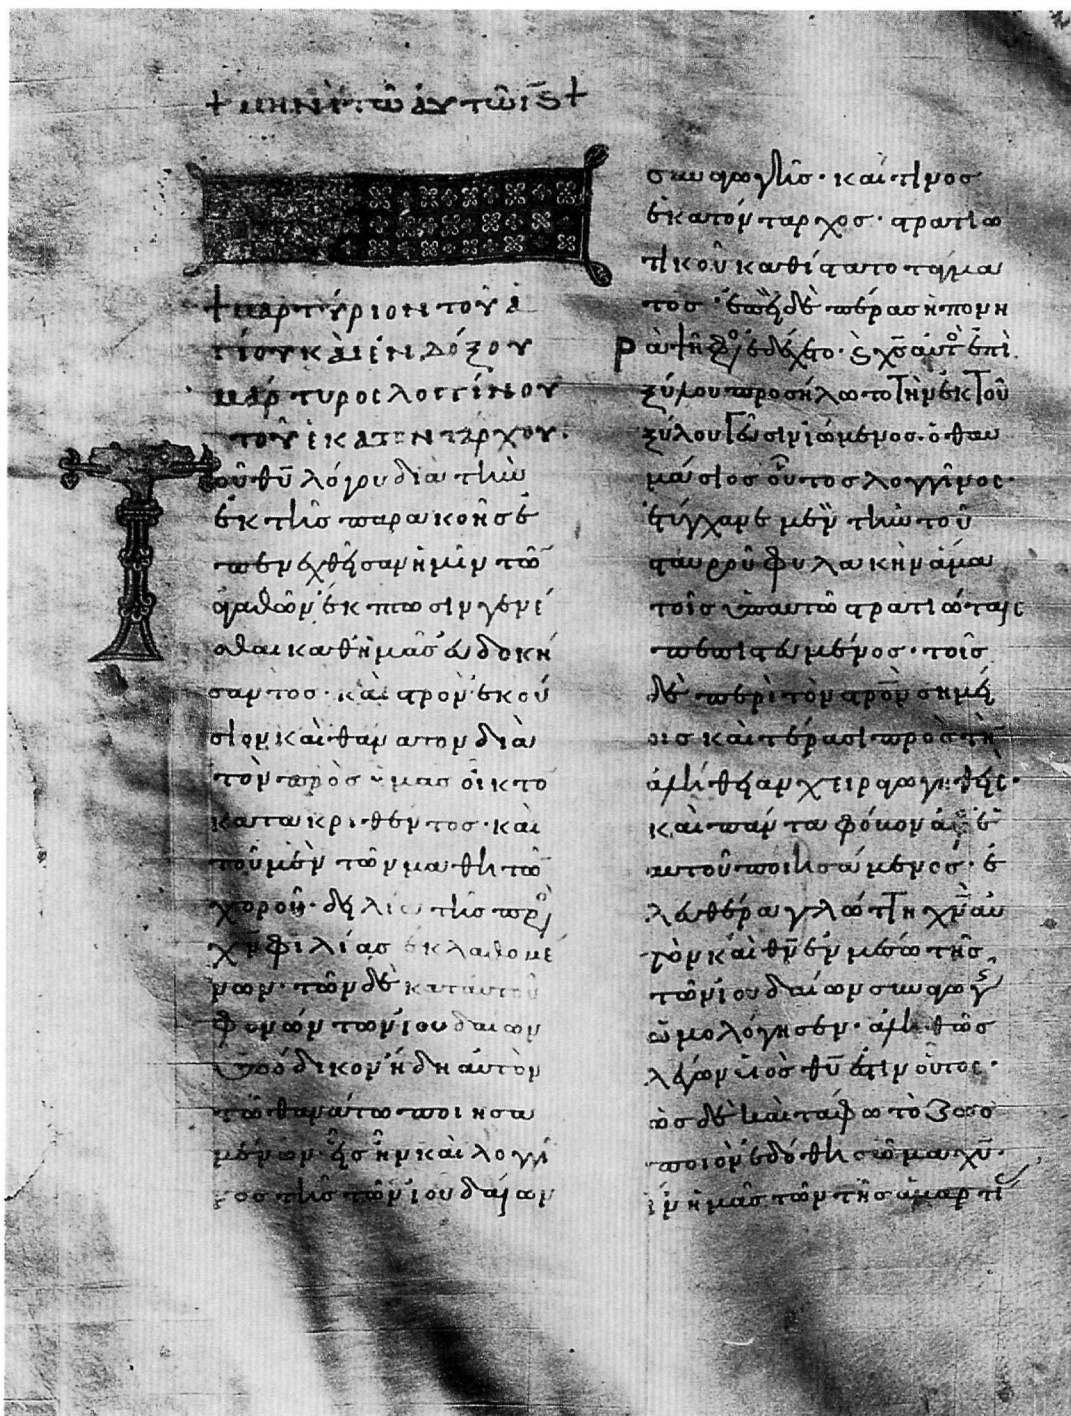 + μηνὶ τῶ αὐτῶ ιϛ +
+ μαρτύριον τοῦ ἁ
γίου καὶ ἐνδόξου
μάρτυρος λογγίνου
τοῦ ἑκατοντάρχου.
Τοῦ θ̅υ̅ λόγου διὰ τὴν
ἐκ τῆς παρακοῆς ἐ
πενεχθεῖσαν ἡμῖν τῶ̅
ἀγαθῶν ἔκπτωσιν γενέ
σθαι καθ ἡμᾶς εὐδοκή
σαντος· καὶ σ̅ρ̅ο̅ν̅ ἑκού
σιον καὶ θάνατον διὰ
τὸν πρὸς ἡμας οἶκτο
κατακριθέντος· καὶ
τοῦ μὲν τῶν μαθητῶ̅
χοροῦ· δειλία τῆς πρὸ
χ̅ν̅ φιλίας ἐκλαθομέ
νων· τῶν δὲ κατ αυτοῦ
φονών τῶν ἰουδαίων
ὑπόδικον ἤδη αὐτὸν
τῶ θανάτω ποιησα
μένων· εἷς ἦν καὶ λογγῖ
νος τῆς τῶν ἰουδαίων
συναγωγῆς· καί τινος
ἑκατόνταρχος· στρατιω
τικοῦ καθίστατο τάγμα
τος· ἐπεὶ δὲ πέρας ἡ πονη
ρὰ
ξύλου προσήλωτο τὴν ἐκ τοῦ
ξύλου
μάσιος οὗτος λογγῖνος·
ἐτύγχανε μὲν τὴν τοῦ
σταυροῦ φυλακὴν ἅμα
τοῖς ὑπ αυτῶ στρατιώταις
πεπιστευμένος· τοῖς
δὲ περὶ τὸν σ̅ρ̅ο̅ν̅ σημεί
οις καὶ τέρασι πρὸς τὴ̅
ἀλήθειαν χειραγωγηθείς·
καὶ πάντα φόνον
αυτοῦ ποιησάμενος· ἐ
λευθέρα γλώττη χ̅ν̅ αὐ
τὸν καὶ θ̅ν̅ ἐν μέσω τῆς
τῶν ἰουδαίων συναγωγῆς
ὡμολόγησεν· ἀληθῶς
λέγων υἱὸς θ̅υ̅ ἐστιν οὗτος·
ὡς δὲ καὶ τάφω τὸ ζωο
ποιὸν ἐδόθη σῶμα χ̅υ̅·
ἵν ἡμᾶς τῶν τῆς ἁμαρτί